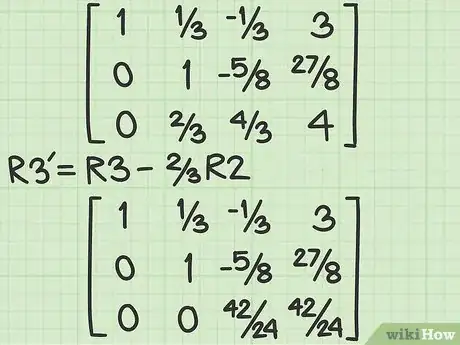 1 1/3 -1/3 3
0 1 -5/8 27/8
0 2/3 4/3 4
R3′= R3 - 2/3R2
1 1/3 -1/3 3
0 1 -5/8 27/8
0 0 42/24 42/24
wikiHow